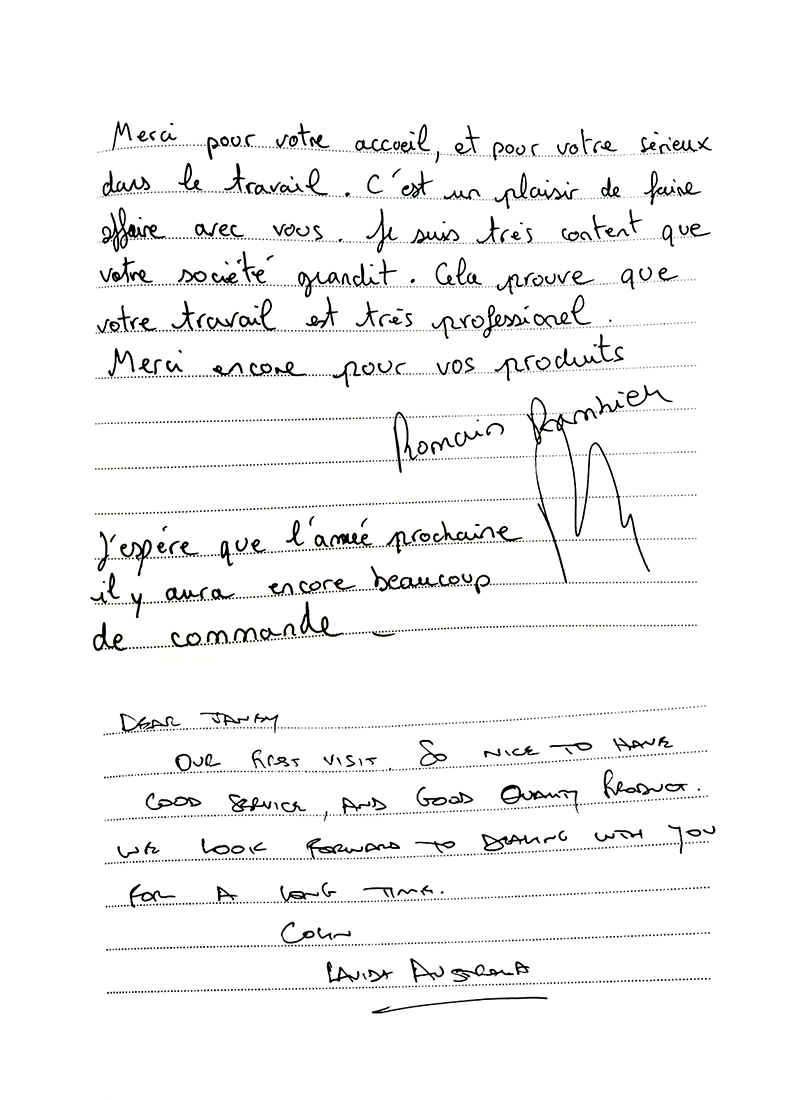 Merci pour votre accoeil, et pour votre sérieux
dans le travail. C'est un plaisir de faire
affaire avec vous. Je suis très content que
votre société grandit. Cela prouve que
votre travail est très professionel.
Merci encore pour vos produits
Romain
J'espére que l'année prochaine
il y aura encore beaucoup
de commande
DEAR
OUR FIRST VISIT. SO NICE TO HAVE
GOOD SERVICE, AND GOOD QUALITY PRODUCT.
WE LOOK FORWARD TO DEALING WITH YOU
FOR A LONG TIME.
COLIN
AUSTRALIA